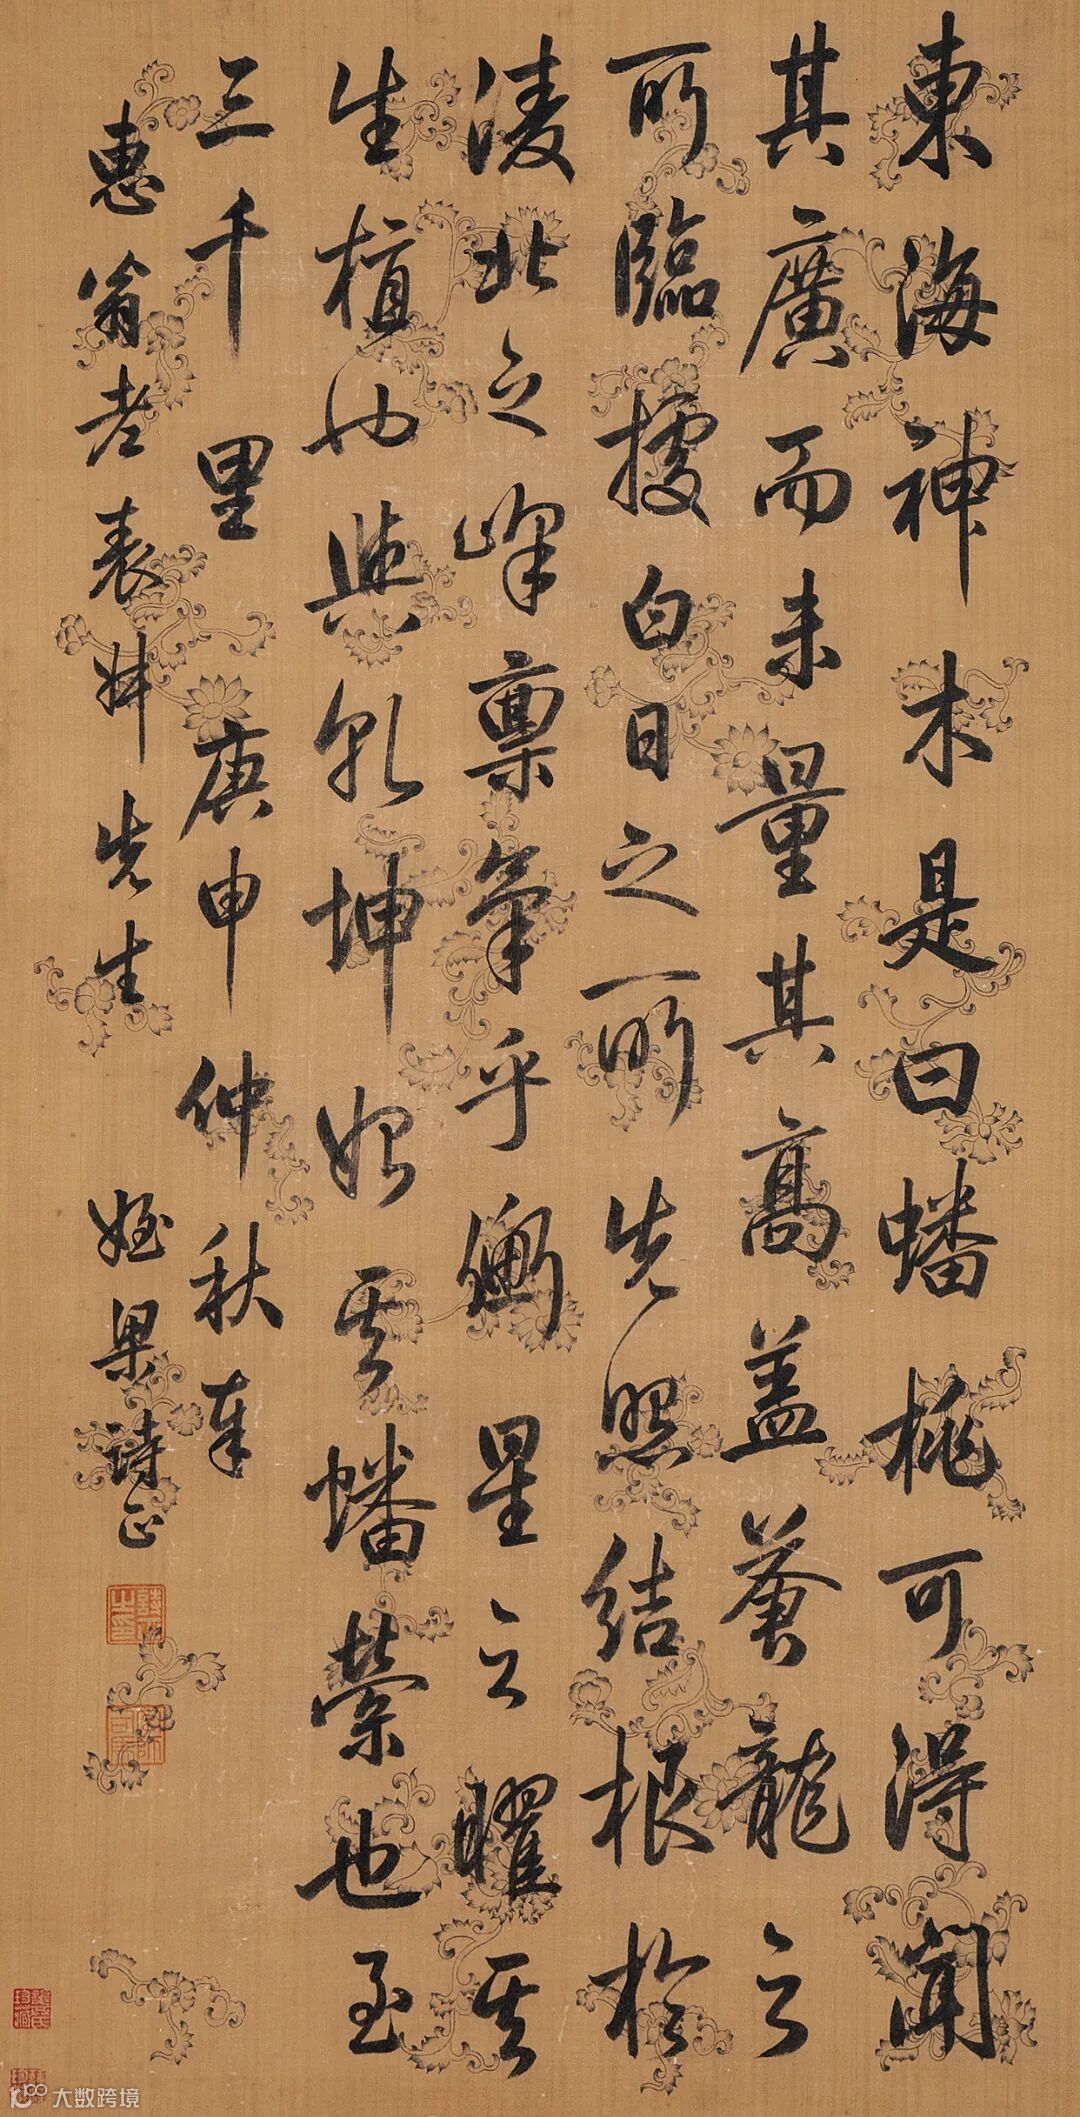 東海神木是曰蟠桃可得聞
其廣而未量其高蓋蒼龍之
所臨據白日之所先照結根於
淩北之峰稟氣乎衡星之曜其
生植也與乾坤始其蟠縈也至
三千里 庚申仲秋奉
惠翁老表姊先生 姪梁詩正
大数跨境